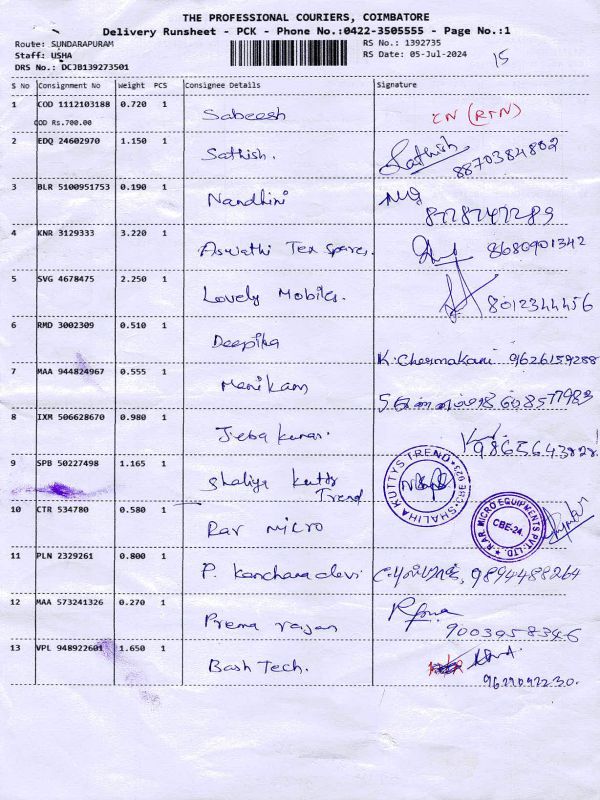 THE PROFESSIONAL COURIERS, COIMBATORE
Delivery Runsheet - PCK - Phone No.:0422-3505555 - Page No.:1
Route: SUNDARAPURAM
RS No.: 1392735
Staff: USHA
RS Date: 05-Jul-2024
15
DRS No.: DCJB139273501
S No Consignment No Weight PCS Consignee Details Signature
1 COD 1112103188 0.720 1 Sabeesh CN (RTN)
COD Rs.700.00
2 EDQ 24602970 1.150 1 Sathish. Sathish
8870384802
3 BLR 5100951753 0.190 1 Nandhini
8778247289
4 KNR 3129333 3.220 1 Aswathi Tex Spares. 8680901342
5 SVG 4678475 2.250 1 Lovely Mobiles. 8012344456
6 RMD 3002309 0.510 1 Deepika K. Chermakani 9626159288
7 MAA 944824967 0.555 1 Manikam 8608577983
8 IXM 506628670 0.980 1 Jeba kumar. 9865643828
9 SPB 50227498 1.165 1 Shaliya kuttys Trend SHALIHA KUTTYS TREND
10 CTR 534780 0.580 1 Rar micro RAR MICRO EQUIPMENTS PVT. LTD. CBE-24.
11 PLN 2329261 0.800 1 P. Kanchana devi 9894488264
12 MAA 573241326 0.270 1 Prema rajan
9003958346
13 VPL 948922601 1.650 1 Bash Tech.
9629092230.